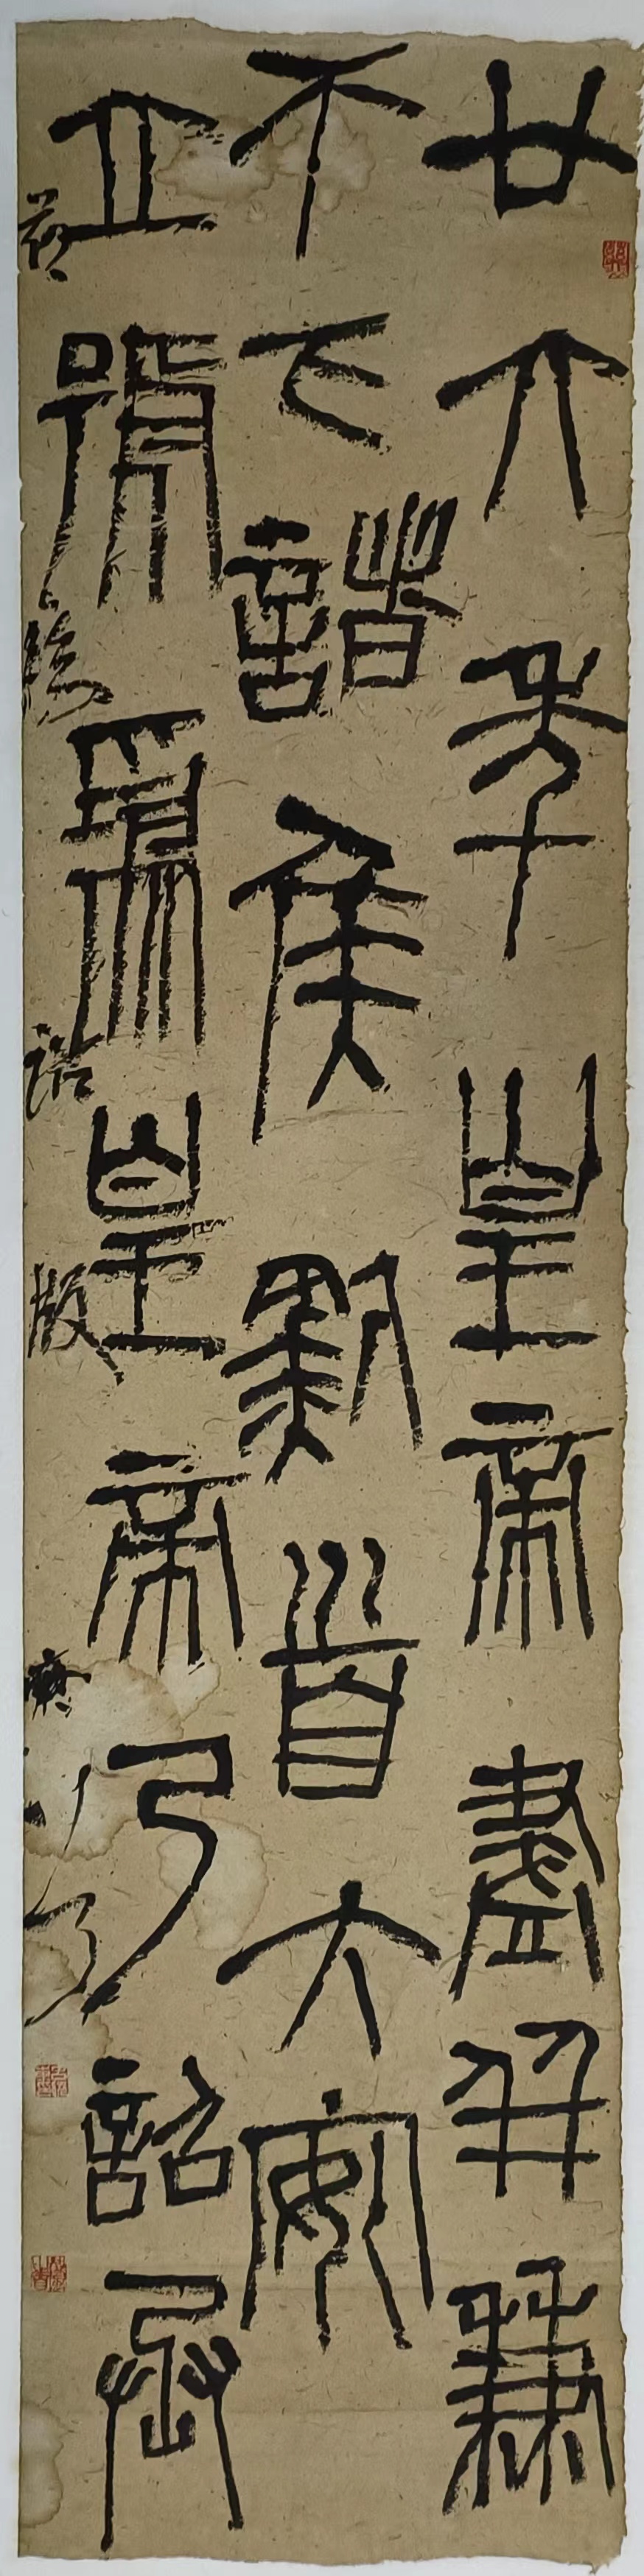 廿六年皇帝盡并兼
天下諸侯黔首大安
立號為皇帝乃詔丞
臨詔版